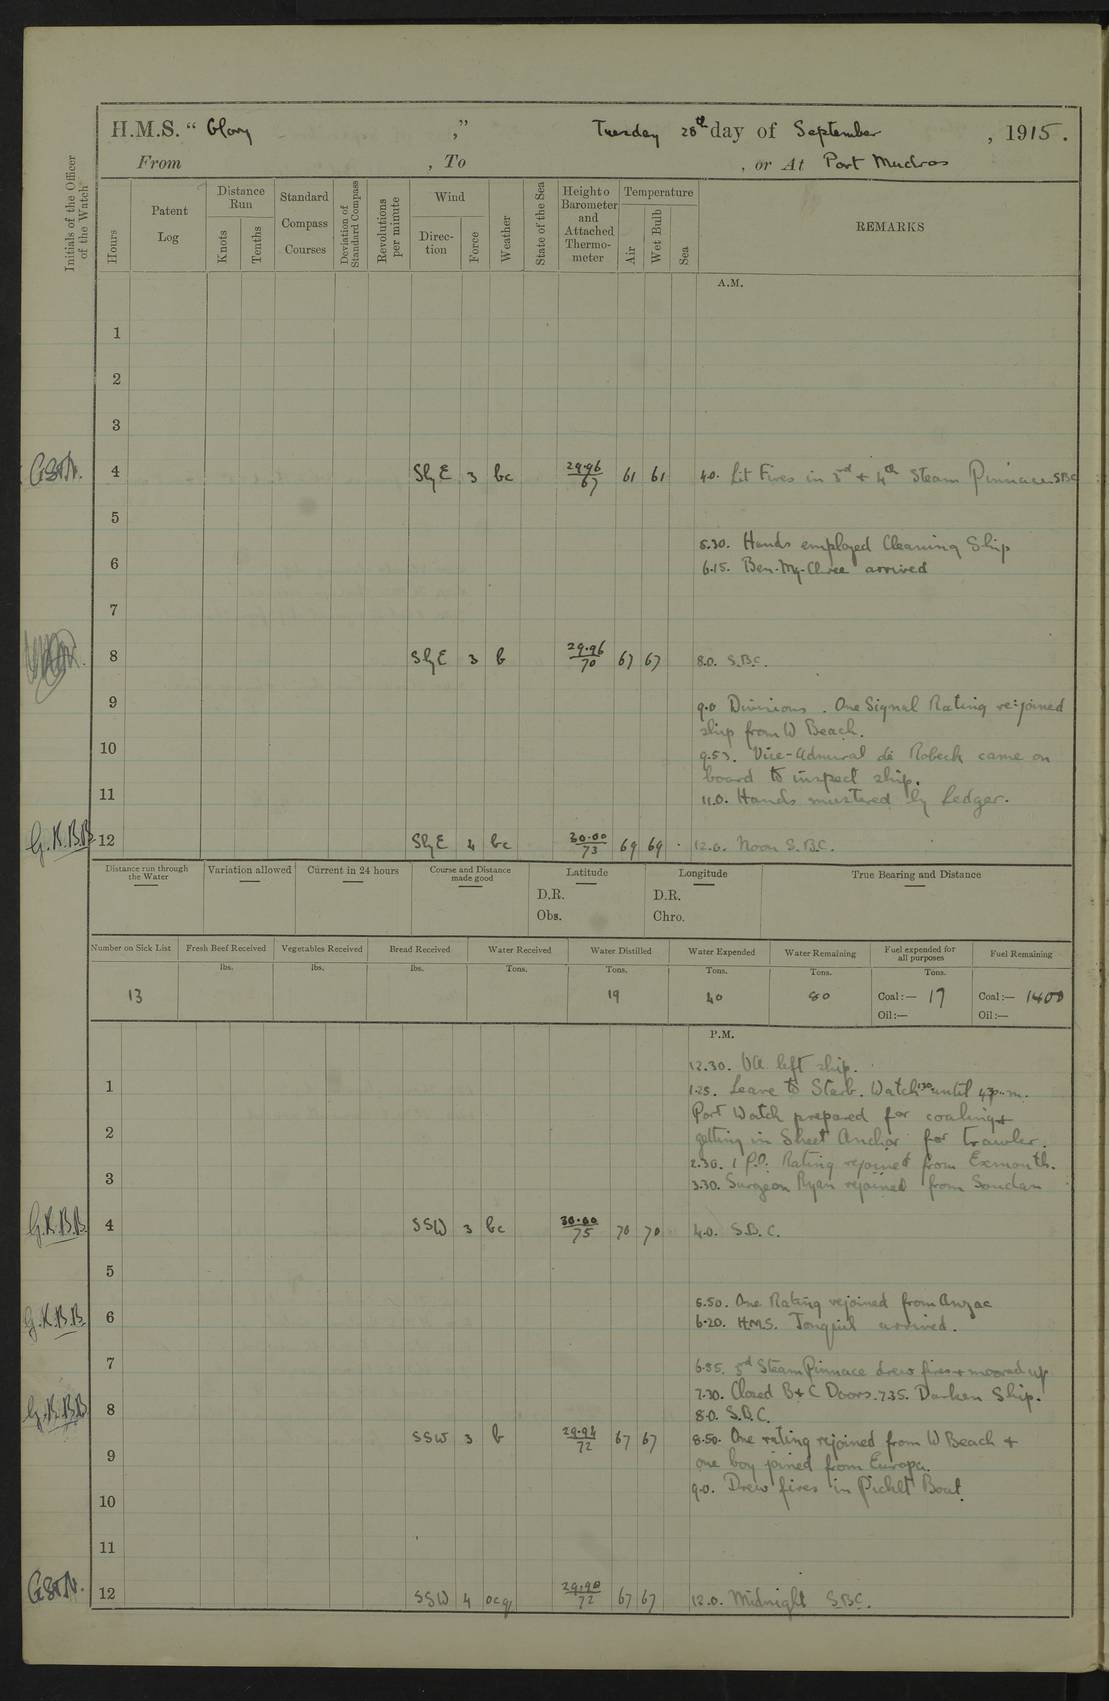 H.M.S. "Glory ," Tuesday 28th day of September , 1915.
From , To , or At Port Mudros
Initials of the Officer of the Watch
Hours
Patent Log
Distance Run
Knots
Tenths
Standard Compass Courses
Deviation of Standard Compass
Revolutions per minute
Wind
Direction
Force
Weather
State of the Sea
Height o Barometer and Attached Thermometer
Temperature
Air
Wet Bulb
Sea
REMARKS
A.M.
1
2
3
4 SbyE 3 bc 29.96/67 61 61 4.0. Lit Fires in 3rd + 4th Steam Pinnaces. SBC
5
5.30. Hands employed Cleaning Ship
6 6.15. Ben-My-Chree arrived
7
8 SbyE 3 b 29.96/70 67 67 8.0. S.B.C.
9 9.0 Divisions. One Signal Rating re:joined
ship from W Beach.
10 9.53. Vice-Admiral de Robeck came on
board to inspect ship.
11 11.0. Hands mustered by Ledger.
G.K.B.B. 12 SbyE 4 bc 30.00/73 69 69 12.0. Noon S.B.C.
Distance run through the Water
Variation allowed
Current in 24 hours
Course and Distance made good
Latitude
D.R.
Obs.
Longitude
D.R.
Chro.
True Bearing and Distance
Number on Sick List
Fresh Beef Received
Vegetables Received
Bread Received
Water Received
Water Distilled
Water Expended
Water Remaining
Fuel expended for all purposes
Fuel Remaining
lbs. lbs. lbs. Tons. Tons. Tons. Tons. Tons.
13 19 40 80 Coal:— 17 Coal:— 1400
Oil:— Oil:—
P.M.
12.30. VA left ship.
1 1.25. Leave to Starb. Watch 1.30 until 4 p.m.
Port Watch prepared for coaling +
2 getting in Sheet Anchor for trawler.
2.30. 1 P.O. Rating rejoined from Exmouth.
3 3.30. Surgeon Ryan rejoined from Soudan
G.K.B.B. 4 SSW 3 bc 30.00/75 70 70 4.0. S.B.C.
5
5.50. One Rating rejoined from Anzac
G.K.B.B. 6 6.20. H.M.S. Jonquil arrived.
7 6.55. 3rd Steam Pinnace drew fires + moored up
7.30. Closed B + C Doors. 7.35. Darken Ship.
G.K.B.B. 8 8.0. S.B.C.
SSW 3 b 29.94/72 67 67 8.50. One rating rejoined from W Beach +
9 one boy joined from Europa.
9.0. Drew fires in Picket Boat.
10
11
12 SSW 4 ocq 29.90/72 67 67 12.0. Midnight S.B.C.